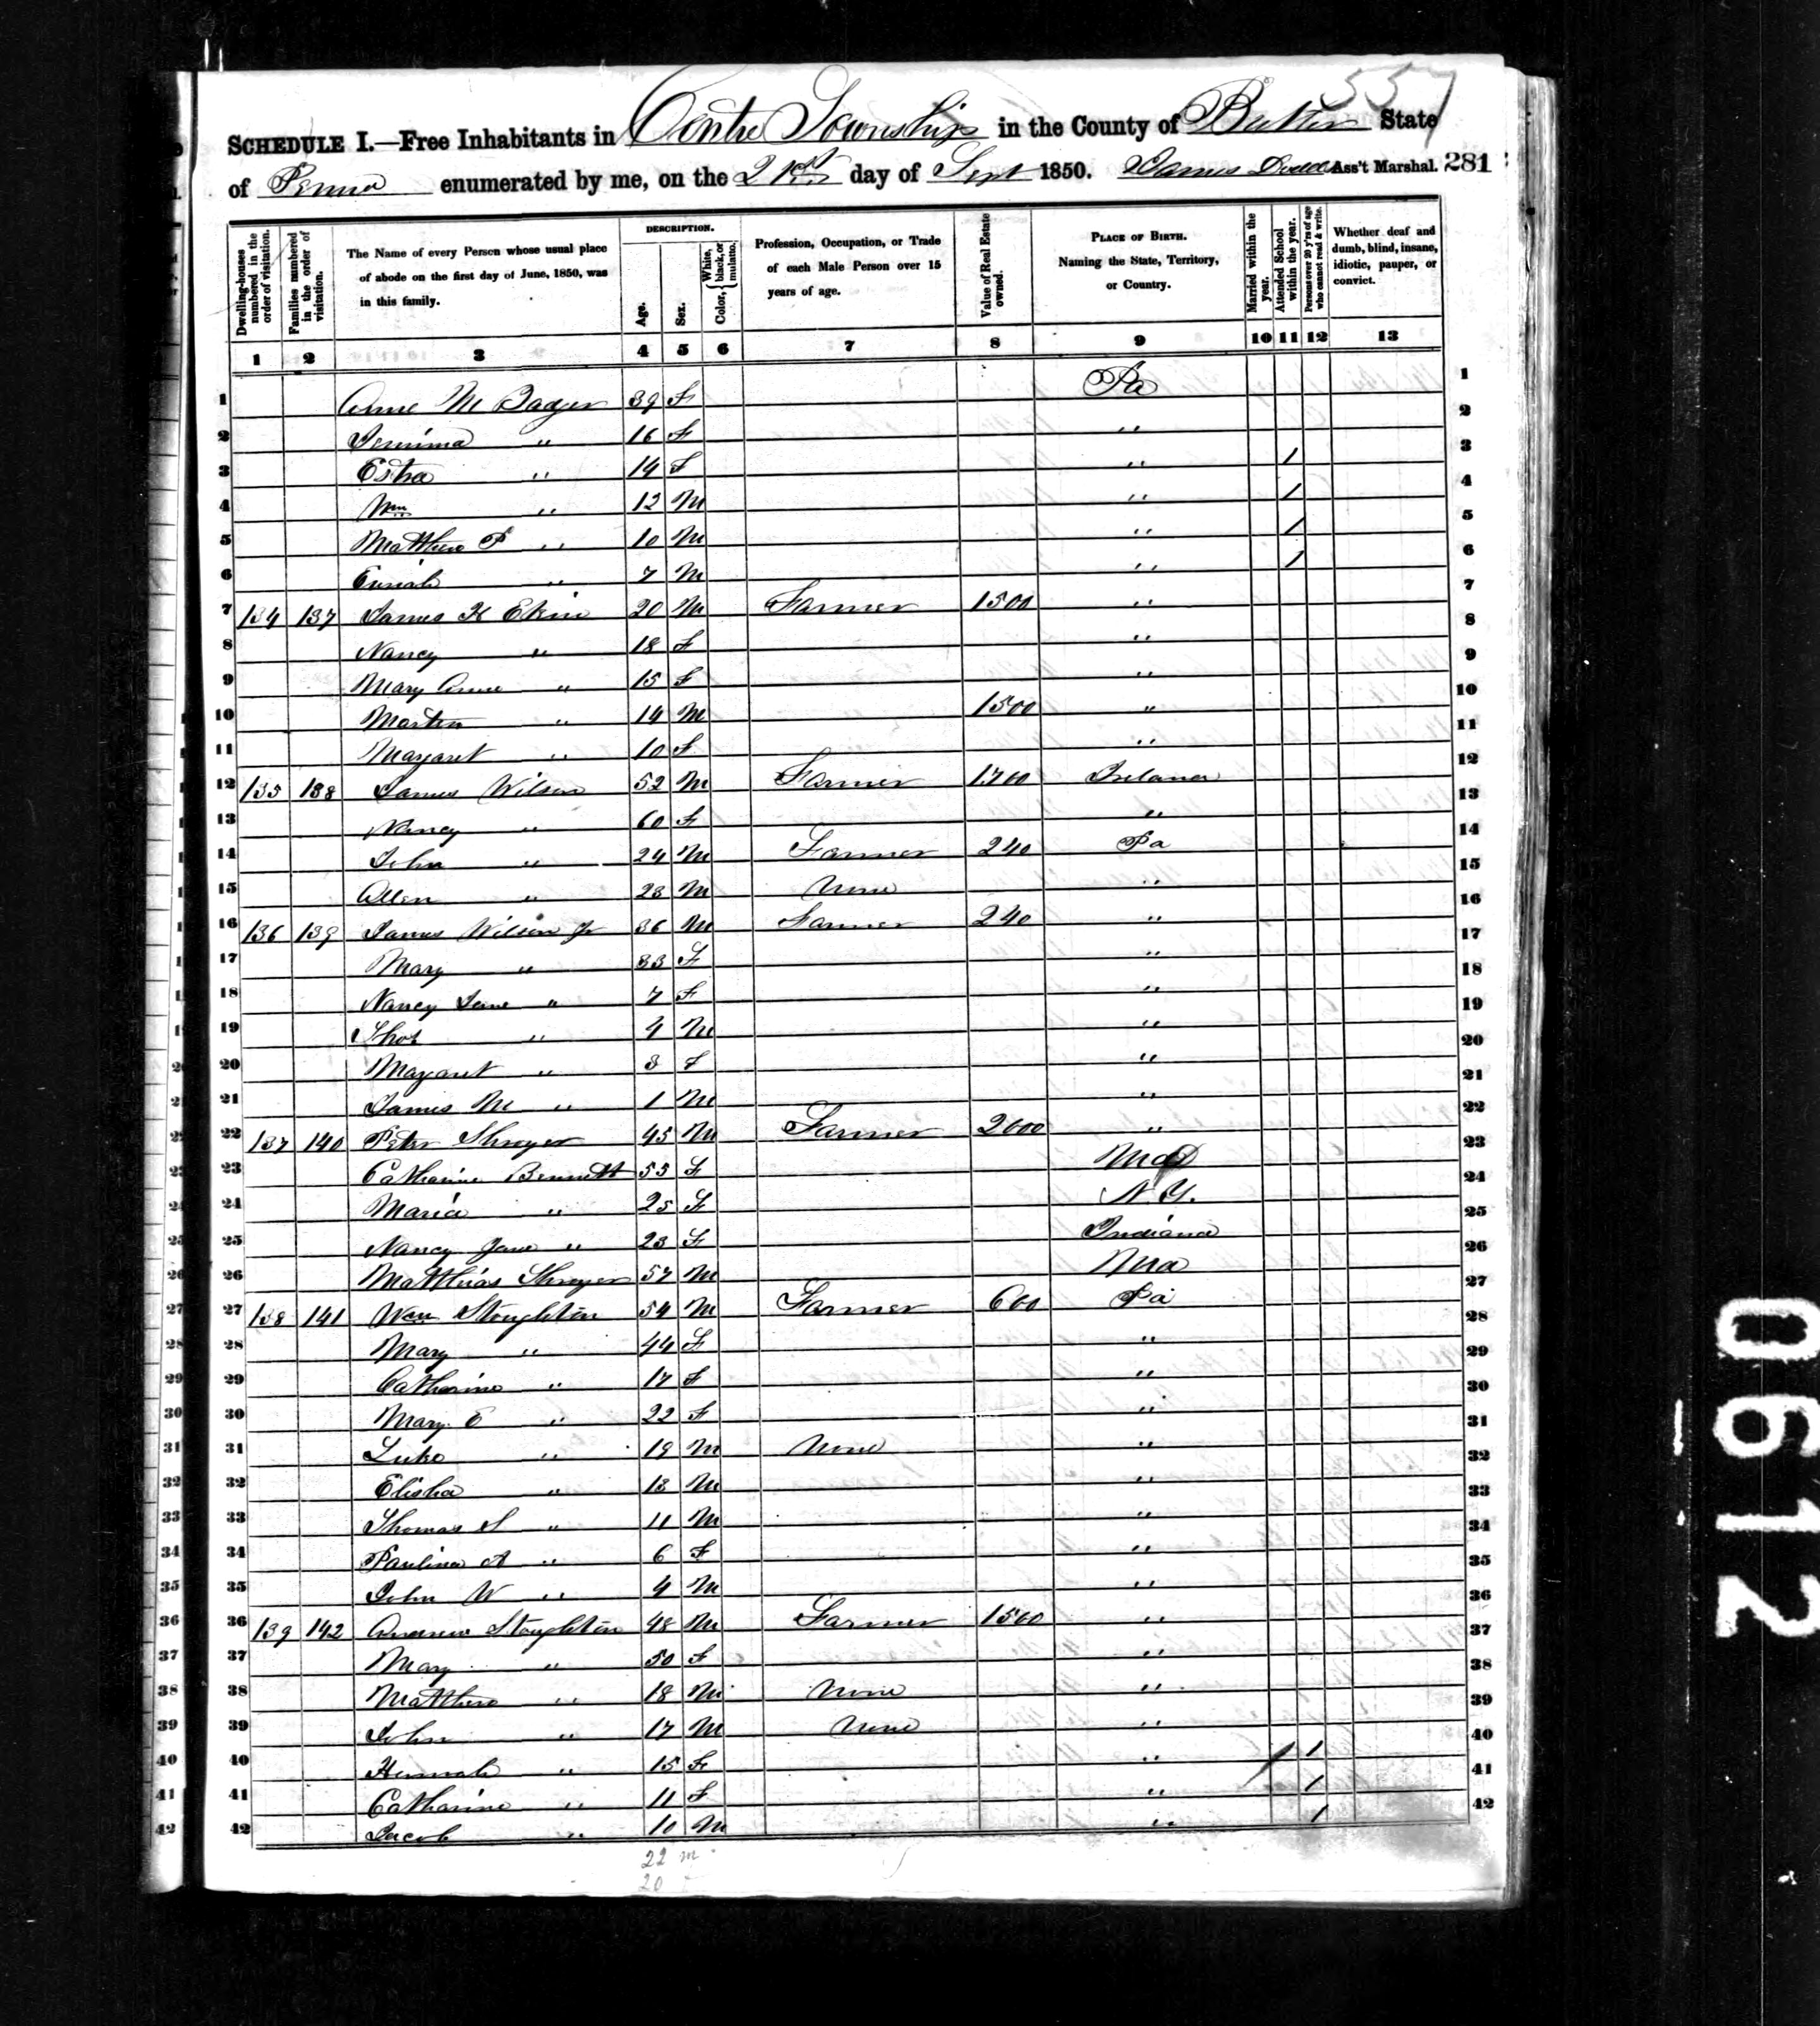 557
SCHEDULE I.—Free Inhabitants in Centre Township in the County of Butler State
of Penna enumerated by me, on the 21st day of Sept 1850. James Ass't Marshal. 281
Dwelling-houses numbered in the order of visitation.
Families numbered in the order of visitation.
The Name of every Person whose usual place of abode on the first day of June, 1850, was in this family.
DESCRIPTION.
Age.
Sex.
Color, { White, black, or mulatto.
Profession, Occupation, or Trade of each Male Person over 15 years of age.
Value of Real Estate owned.
PLACE OF BIRTH. Naming the State, Territory, or Country.
Married within the year.
Attended School within the year.
Persons over 20 y'rs of age who cannot read & write.
Whether deaf and dumb, blind, insane, idiotic, pauper, or convict.
1 2 3 4 5 6 7 8 9 10 11 12 13
1 Anne M 39 F Pa 1
2 Jemima " 16 F " 2
3 " 14 F " 1 3
4 Wm " 12 M " 1 4
5 Matthew P " 10 M " 1 5
6 " 7 M " 1 6
7 134 137 James H Ekin 20 M Farmer 1500 " 7
8 Nancy " 18 F " 8
9 Mary Anne " 15 F " 9
10 Martin " 14 M 1500 " 10
11 Margaret " 10 F " 11
12 135 138 James Wilson 52 M Farmer 1700 Ireland 12
13 Nancy " 60 F " 13
14 John " 24 M Farmer 240 Pa 14
15 Allen " 23 M None " 15
16 136 139 James Wilson Jr 36 M Farmer 240 " 16
17 Mary " 33 F " 17
18 Nancy Jane " 7 F " 18
19 Thos " 4 M " 19
20 Margaret " 3 F " 20
21 James M " 1 M " 21
22 137 140 Peter Shryer 45 M Farmer 2000 " 22
23 Catharine Bennett 55 F Md 23
24 Maria " 25 F N.Y. 24
25 Nancy Jane " 23 F Indiana 25
26 Matthias Shryer 57 M Md 26
27 138 141 Wm Stoughton 54 M Farmer 600 Pa 27
28 Mary " 44 F " 28
29 Catharine " 17 F " 29
30 Mary E " 22 F " 30
31 Luke " 19 M None " 31
32 Elisha " 13 M " 32
33 Thomas S " 11 M " 33
34 Paulina A " 6 F " 34
35 John W " 4 M " 35
36 139 142 Andrew Stoughton 48 M Farmer 1500 " 36
37 Mary " 50 F " 37
38 Matthew " 18 M None " 38
39 John " 17 M None " 39
40 Hannah " 15 F " 1 40
41 Catharine " 11 F " 1 41
42 Jacob " 10 M " 1 42
22 m
20
0612